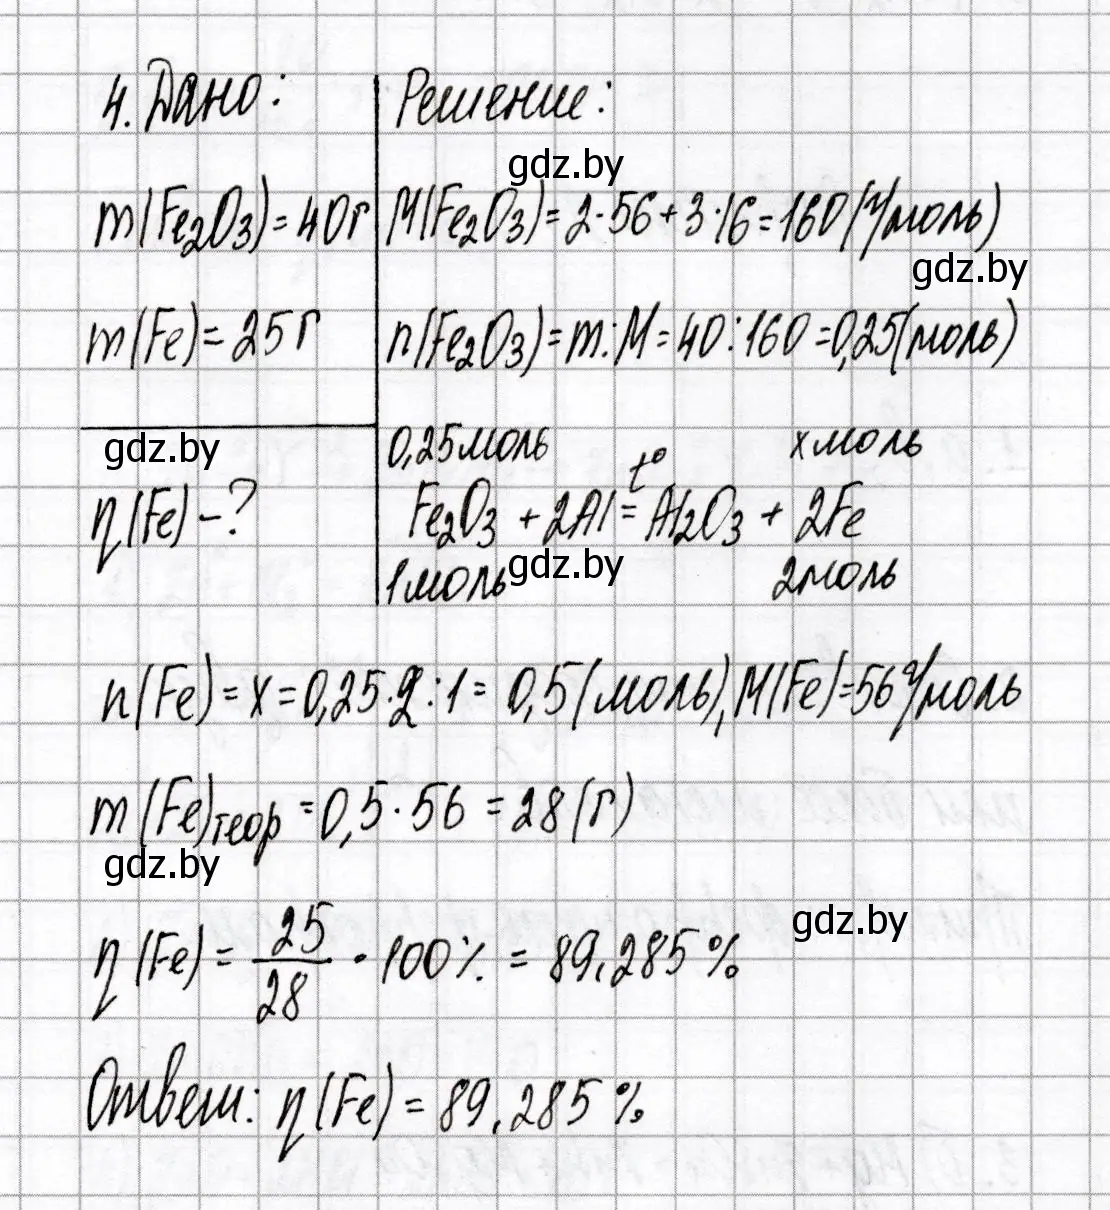 4. Дано:
Решение:
gdz.by
m(Fe₂O₃) = 40г
M(Fe₂O₃) = 2·56 + 3·16 = 160 (г/моль)
gdz.by
m(Fe) = 25г
n(Fe₂O₃) = m:M = 40:160 = 0,25 (моль)
gdz.by
η(Fe) - ?
0,25 моль x моль
Fe₂O₃ + 2Al =t° Al₂O₃ + 2Fe
1 моль gdz.by 2 моль
n(Fe) = x = 0,25·2:1 = 0,5 (моль), M(Fe) = 56 г/моль
m(Fe)теор = 0,5·56 = 28 (г)
gdz.by
gdz.by
η(Fe) = 25/28 · 100% = 89,285%
Ответ: η(Fe) = 89,285%